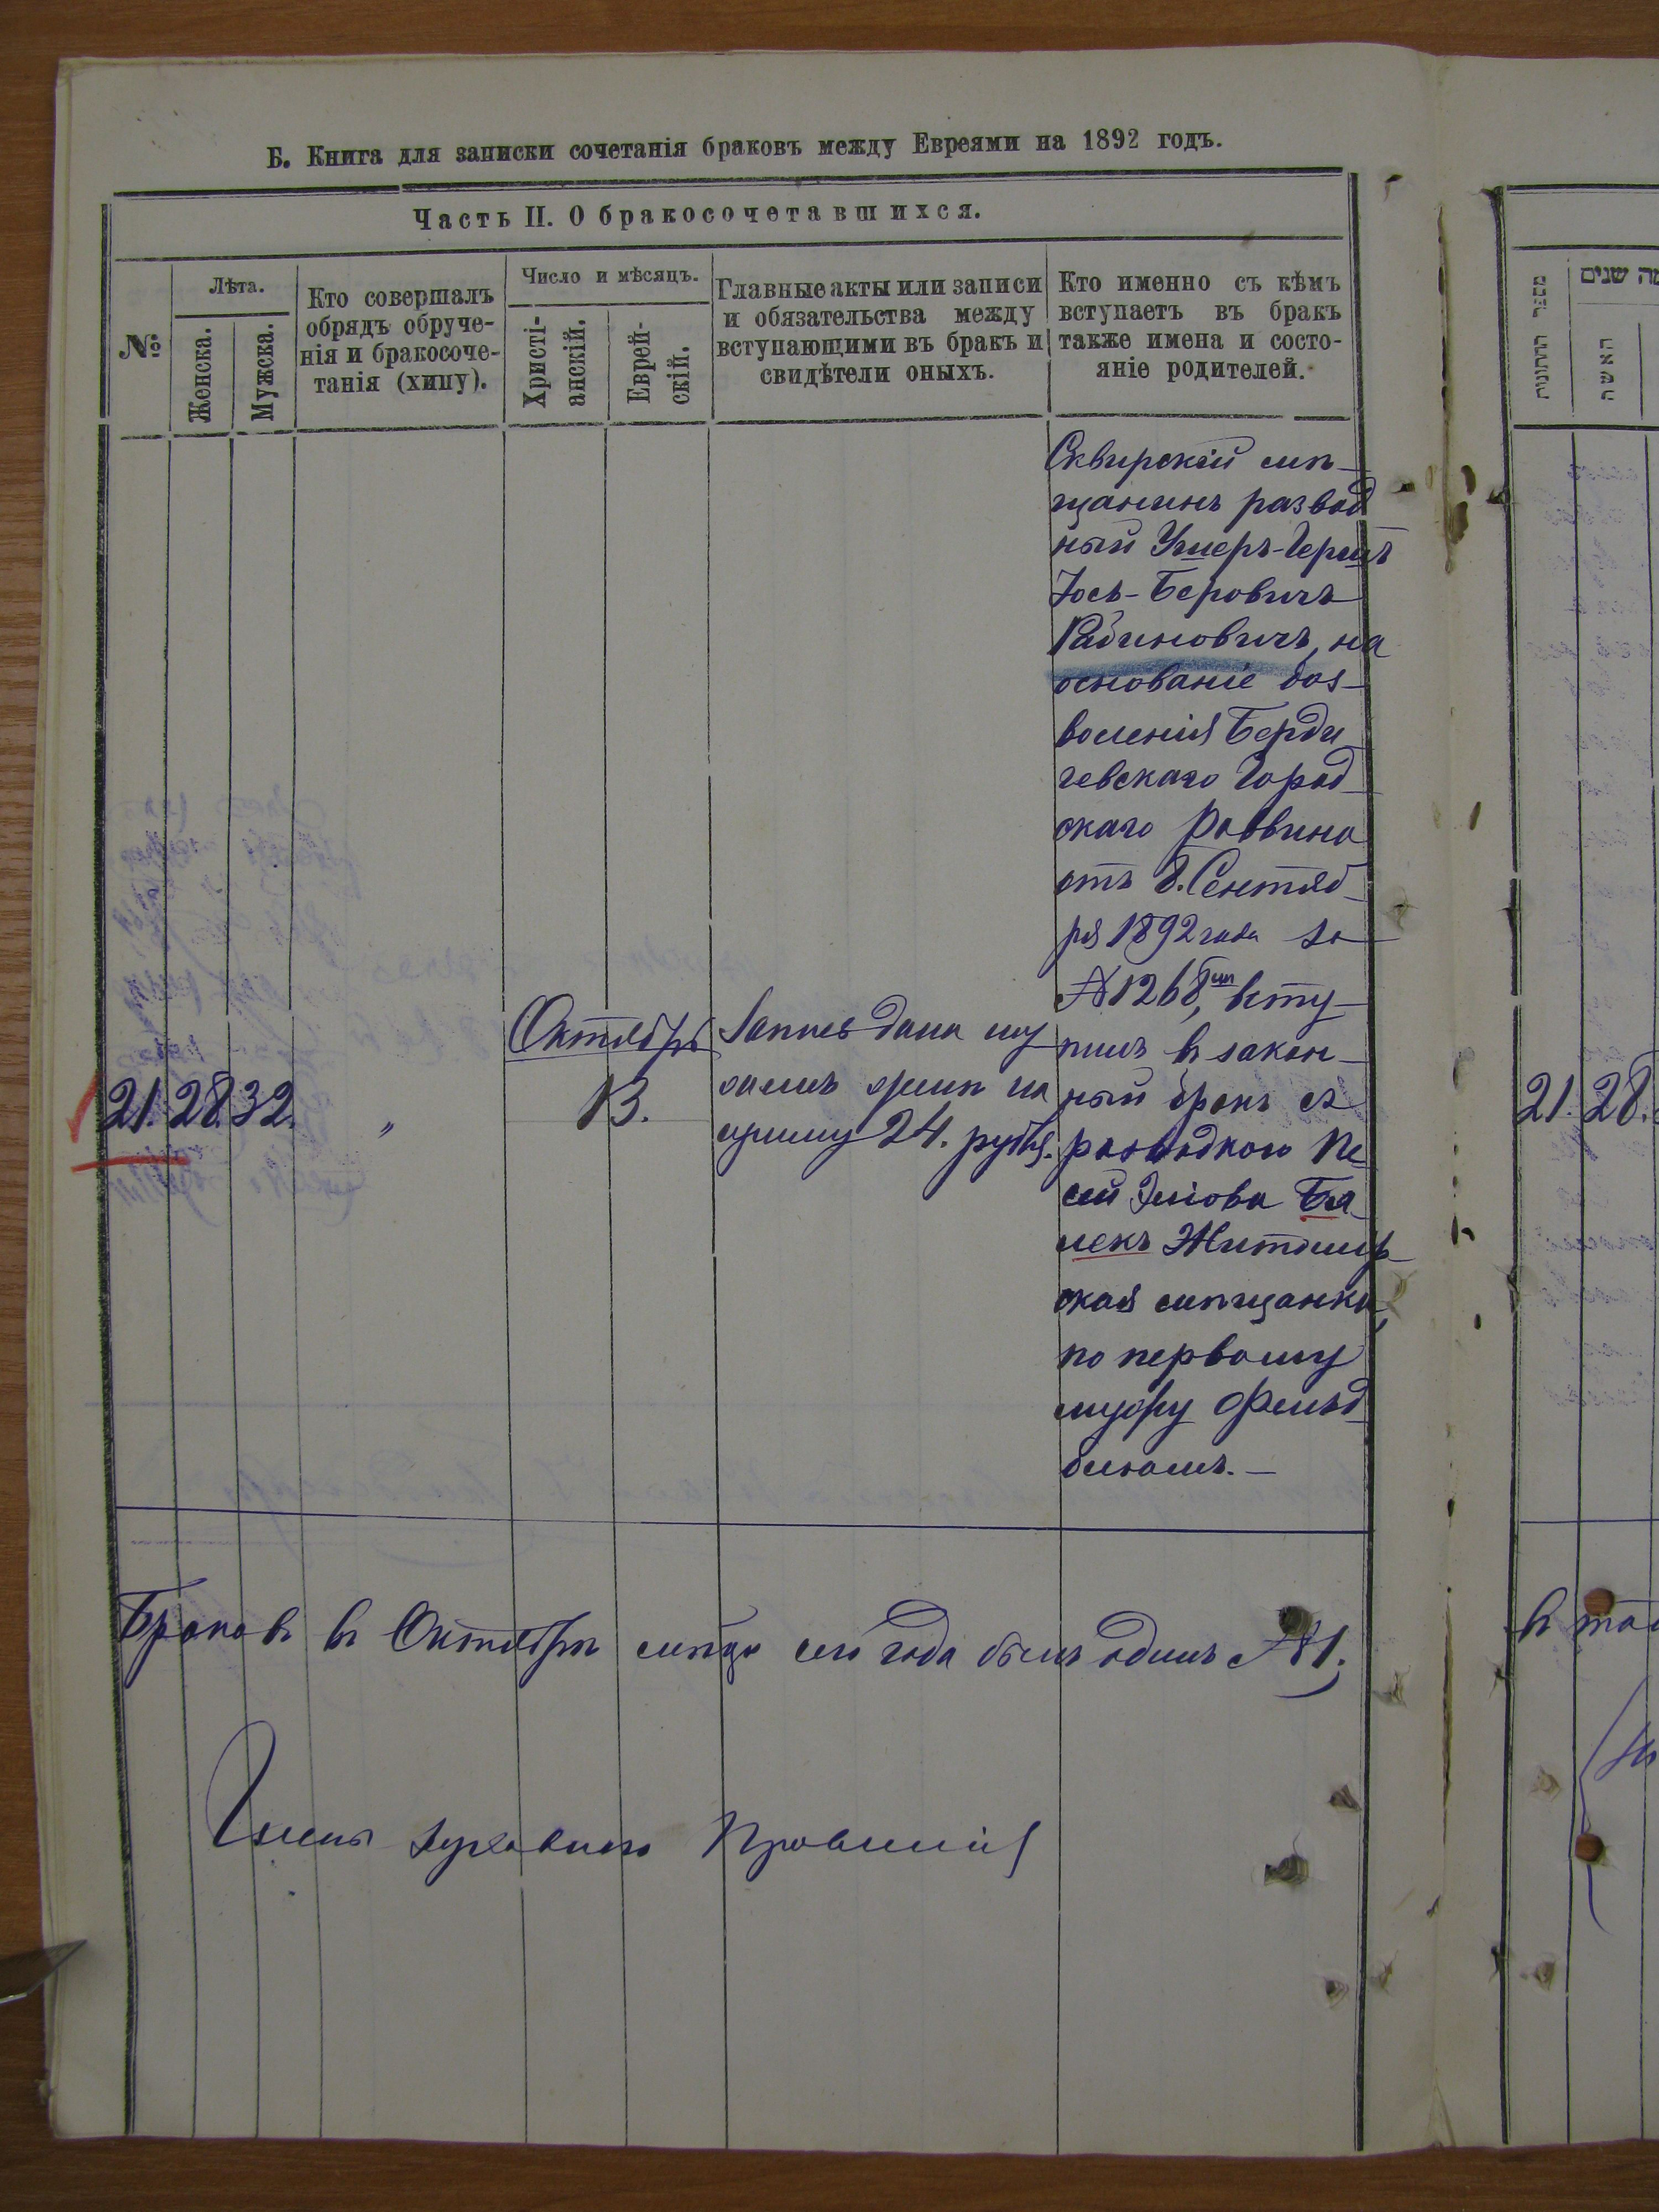 Б. Книга для записки сочетанія браковъ между Евреями на 1892 годъ.
Часть II. О бракосочетавшихся.
№
Лѣта.
Женска.
Мужска.
Кто совершалъ
обрядъ обруче-
нія и бракосоче-
танія (хипу).
Число и мѣсяцъ.
Христі-
анскій.
Еврей-
скій.
Главные акты или записи
и обязательства между
вступающими въ бракъ и
свидѣтели оныхъ.
Кто именно съ кѣмъ
вступаетъ въ бракъ
также имена и состо-
яніе родителей.
21. 28. 32. „
Октябрь
13.
Запись дана му
жемъ женѣ на
сумму 24. рубля.
Сквирскій мѣ-
щанинъ развод
ный Ушеръ-Гершъ
Іось-Беровичъ
Рабиновичъ, на
основаніе доз-
воленія Берди
чевскаго Город-
скаго Раввина
отъ 8. Сентяб-
ря 1892 года за
№ 1268, всту-
пилъ въ закон-
ный бракъ съ
разводкою Пе-
сей Эліова Бя
лекъ Житомир-
ская мѣщанка,
по первому
мужу Фельд-
блюмъ.—
Браковъ въ Октябрѣ мѣсяцѣ сего года былъ одинъ № 1.
Члены духовнаго Правленія
מספר החתונות
מה שנים
האשה
21. 28.